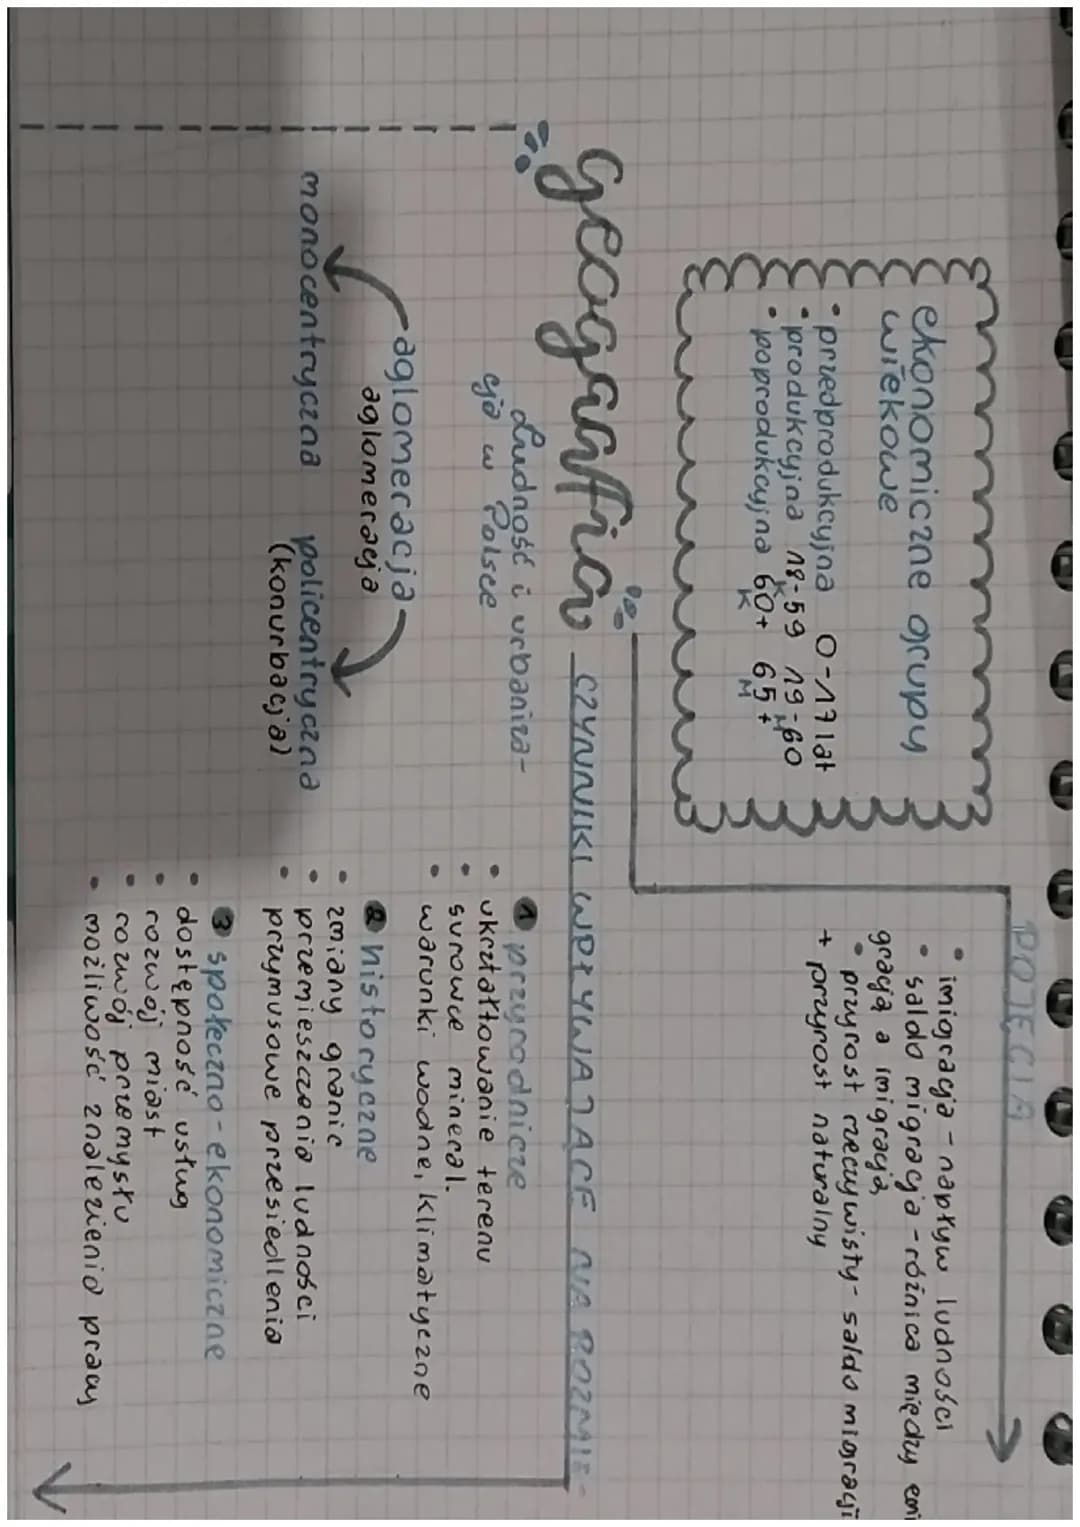 ekonomiczne grupy
wiekowe
• przedprodukcyjna 0-17 lat
• produkcyjna 18-59 19-60
K M
• poprodukcyjna 60+ 65+
K M
Geografia
Ludność i urbaniza-
cja w Polsce
aglomeracja
aglomeracja
monocentryczna policentryczna
(konurbacja)
POJĘCIA
• imigracja - napływ ludności
• saldo migracja - różnica między emi
gracją a imigracją
• przyrost rzeczywisty - saldo migracji
+ przyrost naturalny
CZYNNIKI WPŁYWAJĄCE NA ROZMIE-
1 przyrodnicze
• ukształtowanie terenu
• surowce mineral.
• warunki wodne, klimatyczne
2 historyczne
• zmiany granic
• przemieszczania ludności
• przymusowe przesiedlenia
3 społeczno-ekonomiczne
• dostępność usług
• rozwój miast
• rozwój przemysłu
• możliwość znalezienia pracy